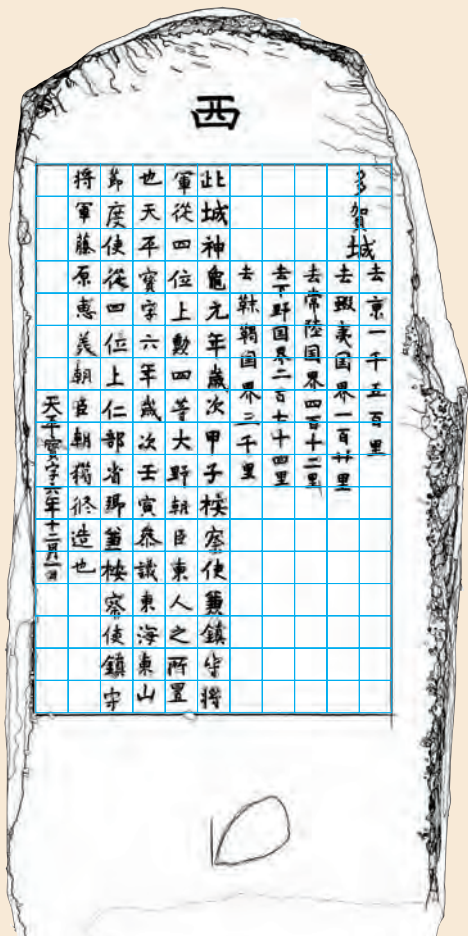 西
多賀城
去京一千五百里
去蝦夷国界一百廿里
去常陸国界四百十二里
去下野国界二百七十四里
去靺鞨国界三千里
此城神龜元年歲次甲子桉察使兼鎮守將
軍從四位上勳四等大野朝臣東人之所置
也天平寶字六年歲次壬寅參議東海東山
節度使從四位上仁部省卿兼桉察使鎮守
將軍藤原惠美朝臣朝獦修造也
天平寶字六年十二月一日